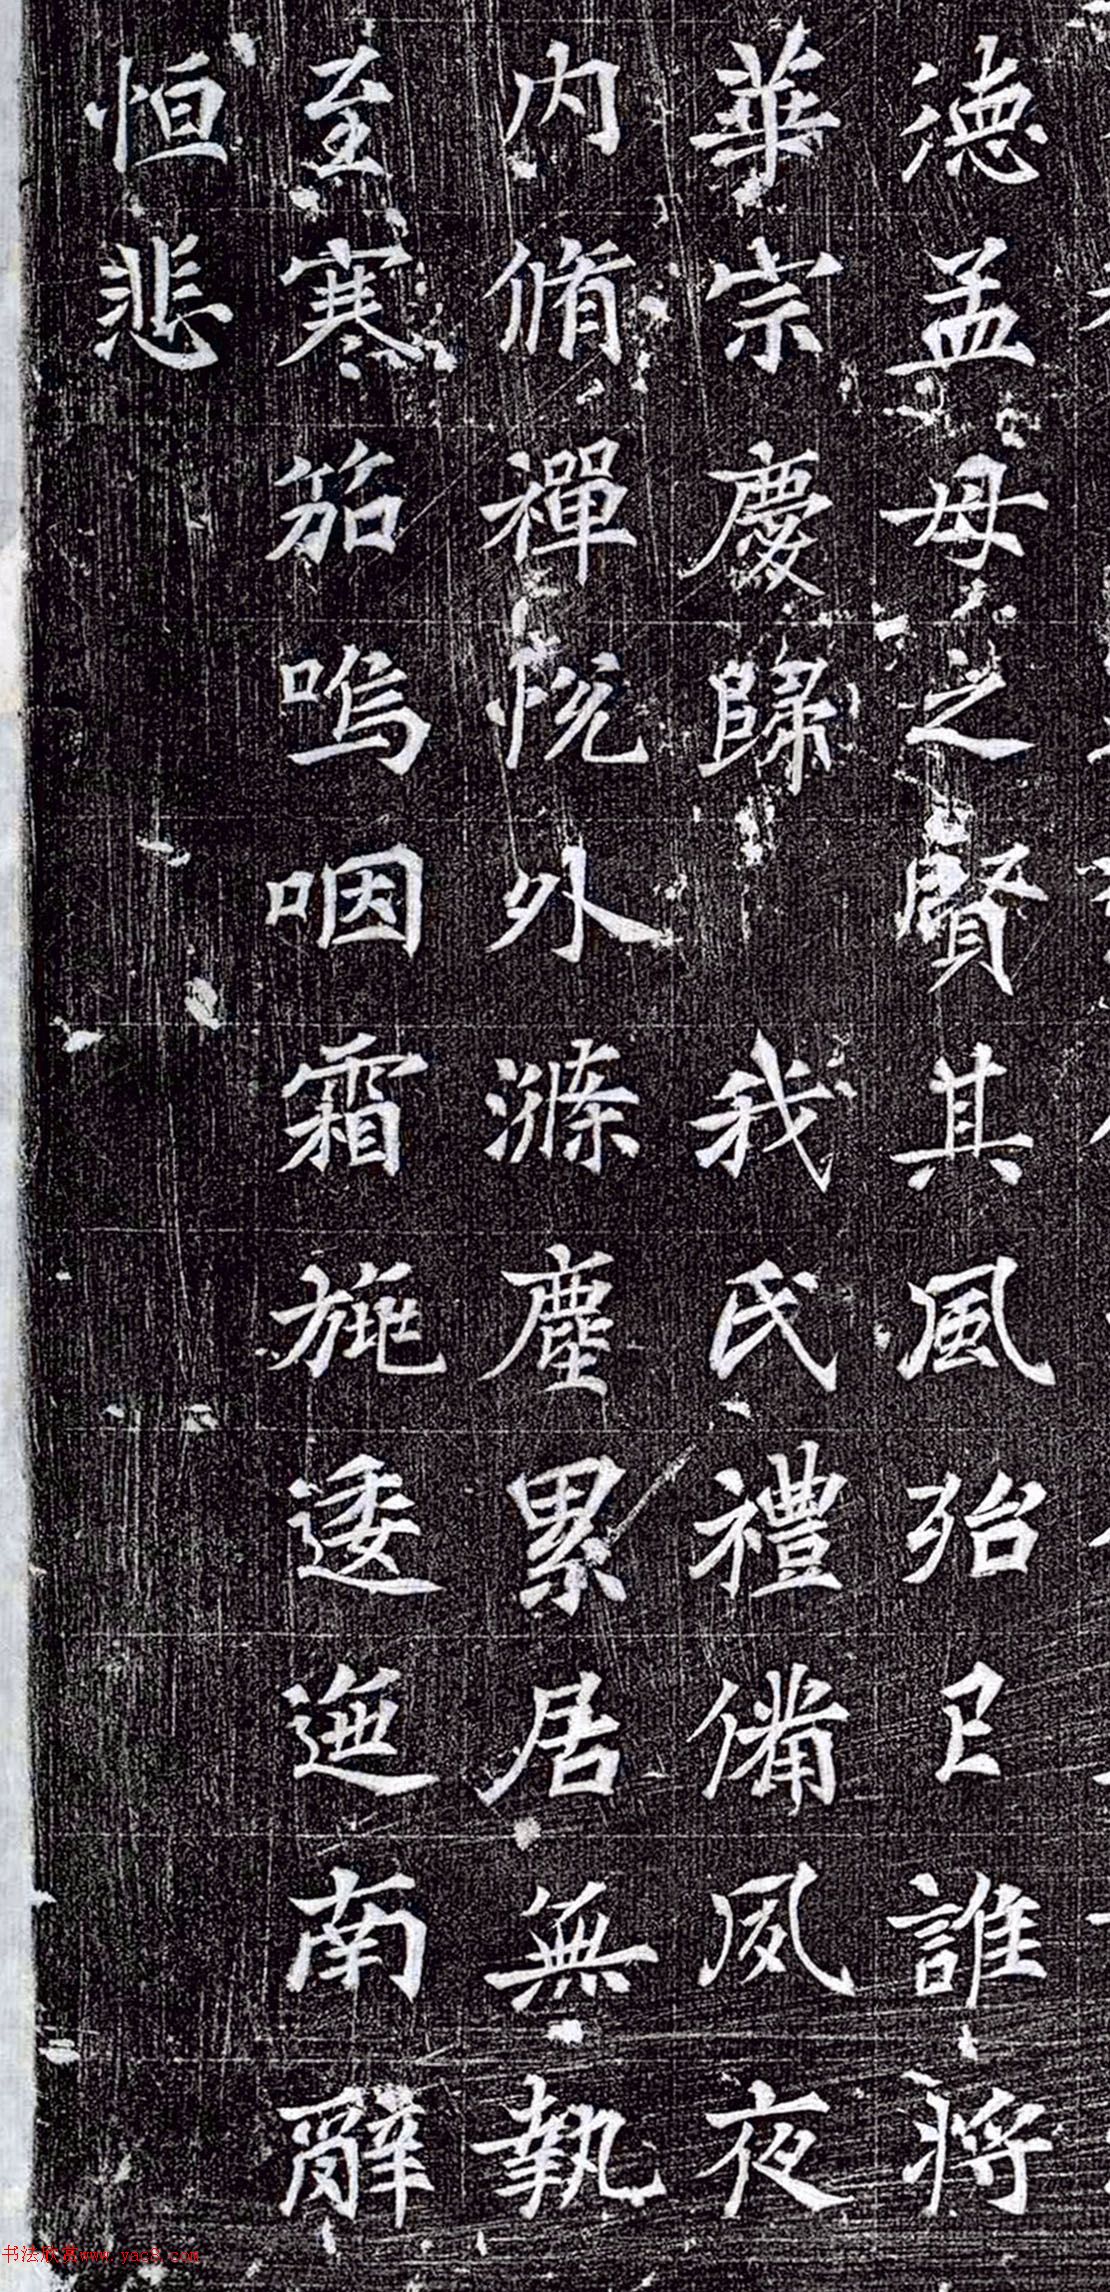 德孟母之賢其風殆已誰將
華宗慶歸 我氏禮備夙夜
內脩禪悅外滌塵累居無執
至寒笳嗚咽霜旐逶迤南辭
恒悲
书法欣赏www.yac8.com